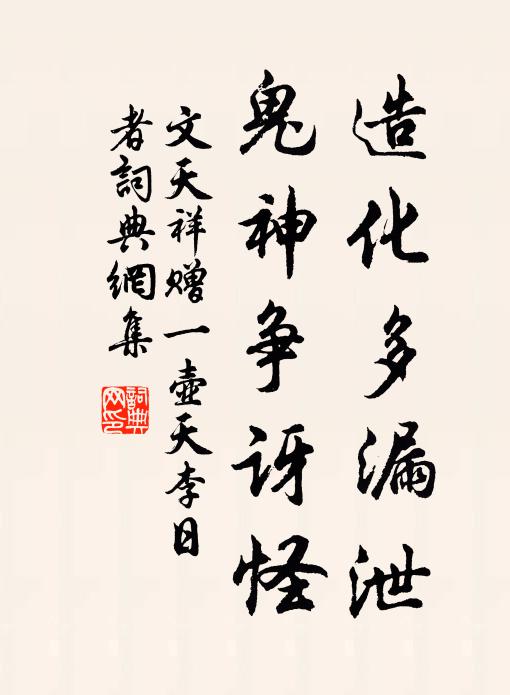 造化多漏泄
鬼神争讶怪
文天祥赠一壶天李日
者詞典網集
詞典
网印